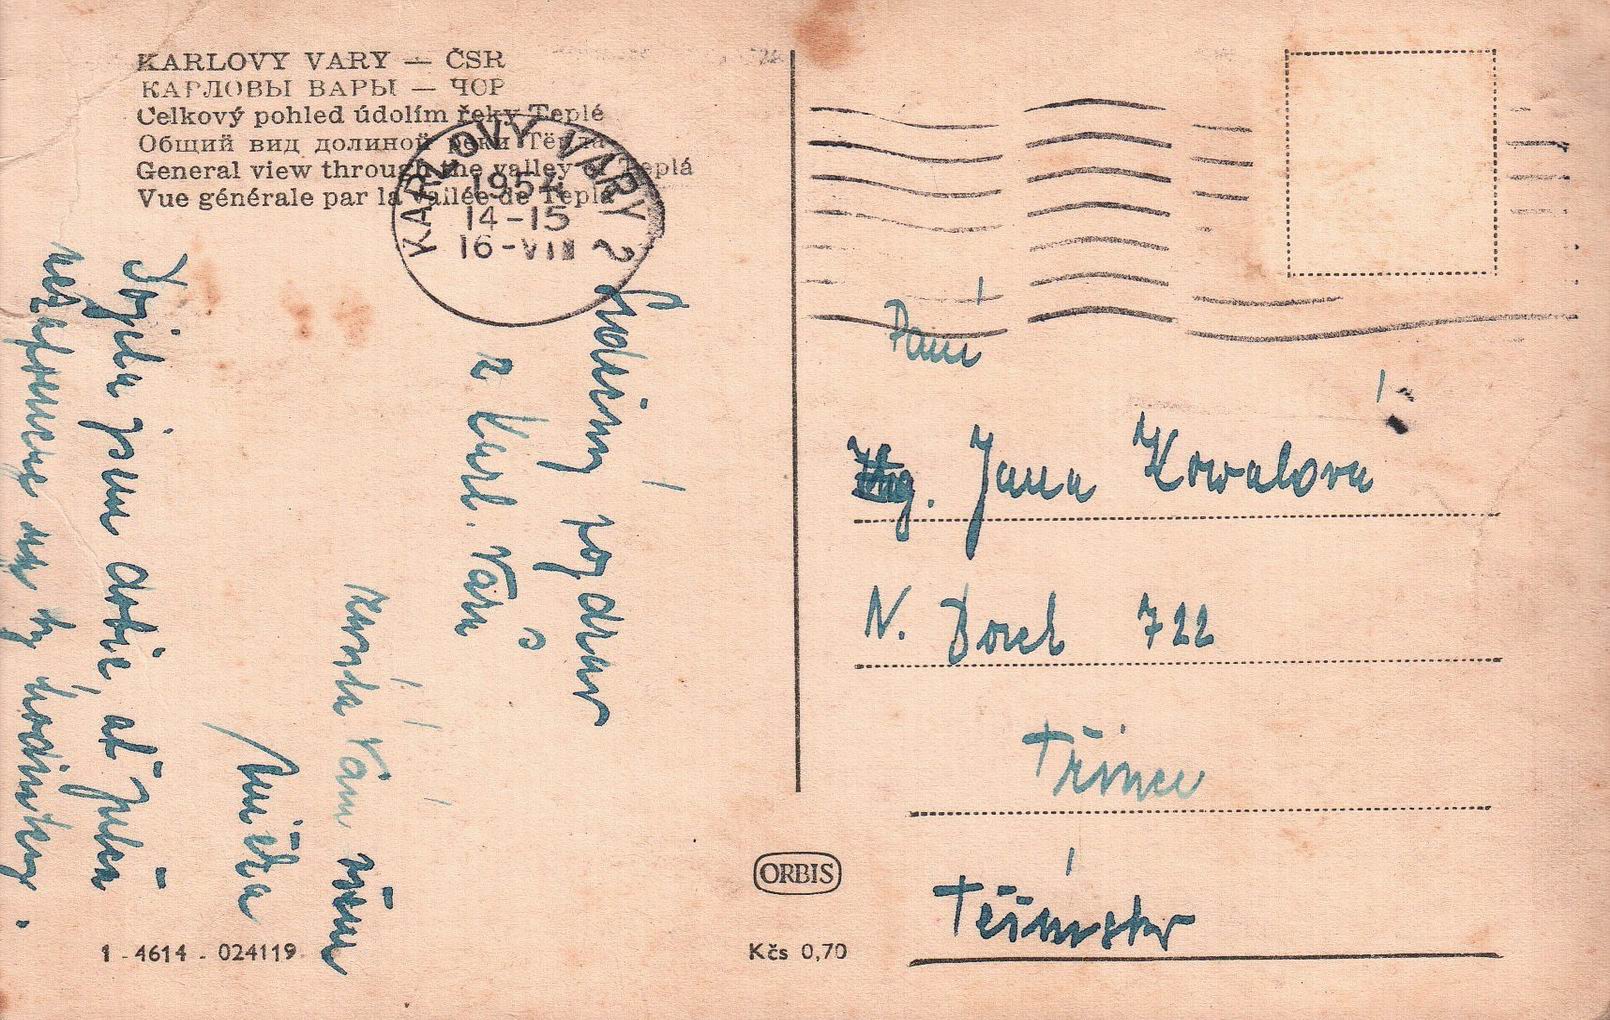 KARLOVY VARY — ČSR
КАРЛОВЫ ВАРЫ — ЧОР
Celkový pohled údolím řeky Teplé
Общий вид долиной реки Тёпла
General view through the valley of Teplá
Vue générale par la vallée de Teplá
KARLOVY VARY 2
1954
14-15
16-VIII
Srdečný pozdrav
z Karl. Varů
Vám všem
Dojela jsem dobře, ať
nezapomene na ty hodinky.
Paní
Ing. Jana Kowalová
N. Borek 722
Třinec
Těšínsko
ORBIS
1 - 4614 - 024119
Kčs 0,70